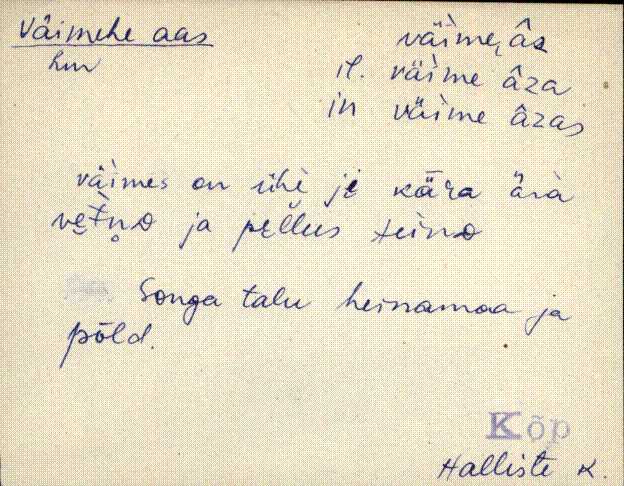 Väimehe aas
väime, âs
hm
il. väime âza
in väime âzas
väimes on ühe je kära ärà
vetno ja pellus teino
Songa talu heinamaa ja
põld.
Kõp
Halliste K.